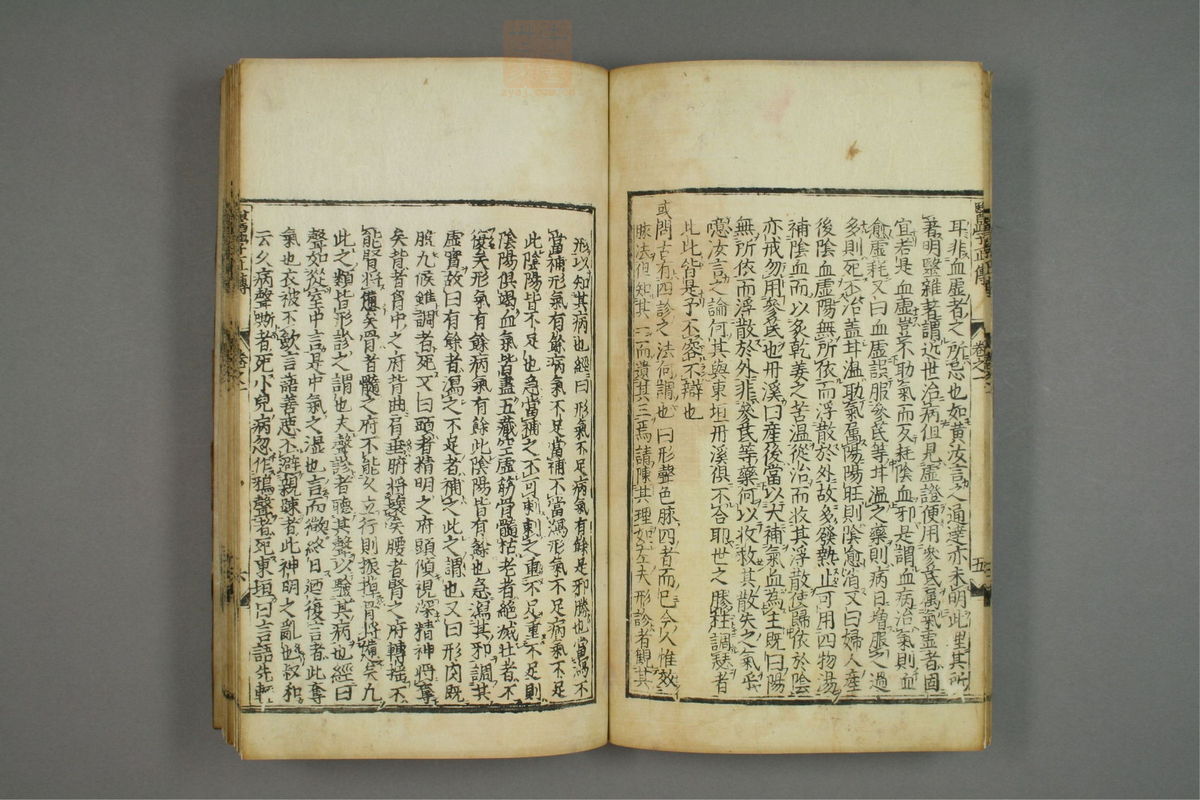 耳非血虛者之所忌也如黃汝言之通達亦未明此里其所
著明醫雜著謂近世治病但見虛證便用參芪属氣虛者固
宜若是血虛豈不助氣而反耗陰血邪是謂血病治氣則血
愈虛耗又曰血虛誤服參芪等甘溫之藥則病日增服之過
多則死不治盖甘溫助氣屬陽陽旺則陰愈消又曰婦人產
後陰血虛陽無所依而浮散於外故多發熱止可用四物湯
補陰血而以炙乾姜之苦溫從治而收其浮散使歸依於陰
亦戒勿用參芪也丹溪曰產後當以大補氣血為主既曰陽
無所依而浮散於外非參芪等藥何以收救其散失之氣乎
噫汝言之論何其與東垣丹溪俱不合耶世之膠柱調瑟者
比比皆是予不容不辯也
或問古有四診之法何謂也曰形聲色脉四者而已今人惟效
脉法但知其一而遺其三焉請陳其理如左夫形診者觀其
形以知其病也經曰形氣不足病氣有餘是邪勝也當瀉不
當補形氣有餘病氣不足當補不當瀉形氣不足病氣不足
此陰陽皆不足也急當補之不可刺刺之重不足重不足則
陰陽俱竭血氣皆盡五藏空虛筋骨髓枯老者絕滅壯者不
復矣形氣有餘病氣有餘此陰陽皆有餘也急瀉其邪調其
虛實故曰有餘者瀉之不足者補之此之謂也又曰形肉既
脫九候雖調者死又曰頭者精明之府頭傾視深精神將奪
矣背者胷中之府背曲肩垂腑將壞矣腰者腎之府轉搖不
能腎將憊矣骨者髓之府不能久立行則振掉骨將憊矣凡
此之類皆形診之謂也夫聲診者聽其聲以驗其病也經曰
聲如從室中言是中氣之濕也言而微終日迺復言者此奪
氣也衣被不歛言語善惡不避親疎者此神明之亂也叔和
云久病聲嘶者死小兒病忽作鴉聲者死東垣曰言語先輕